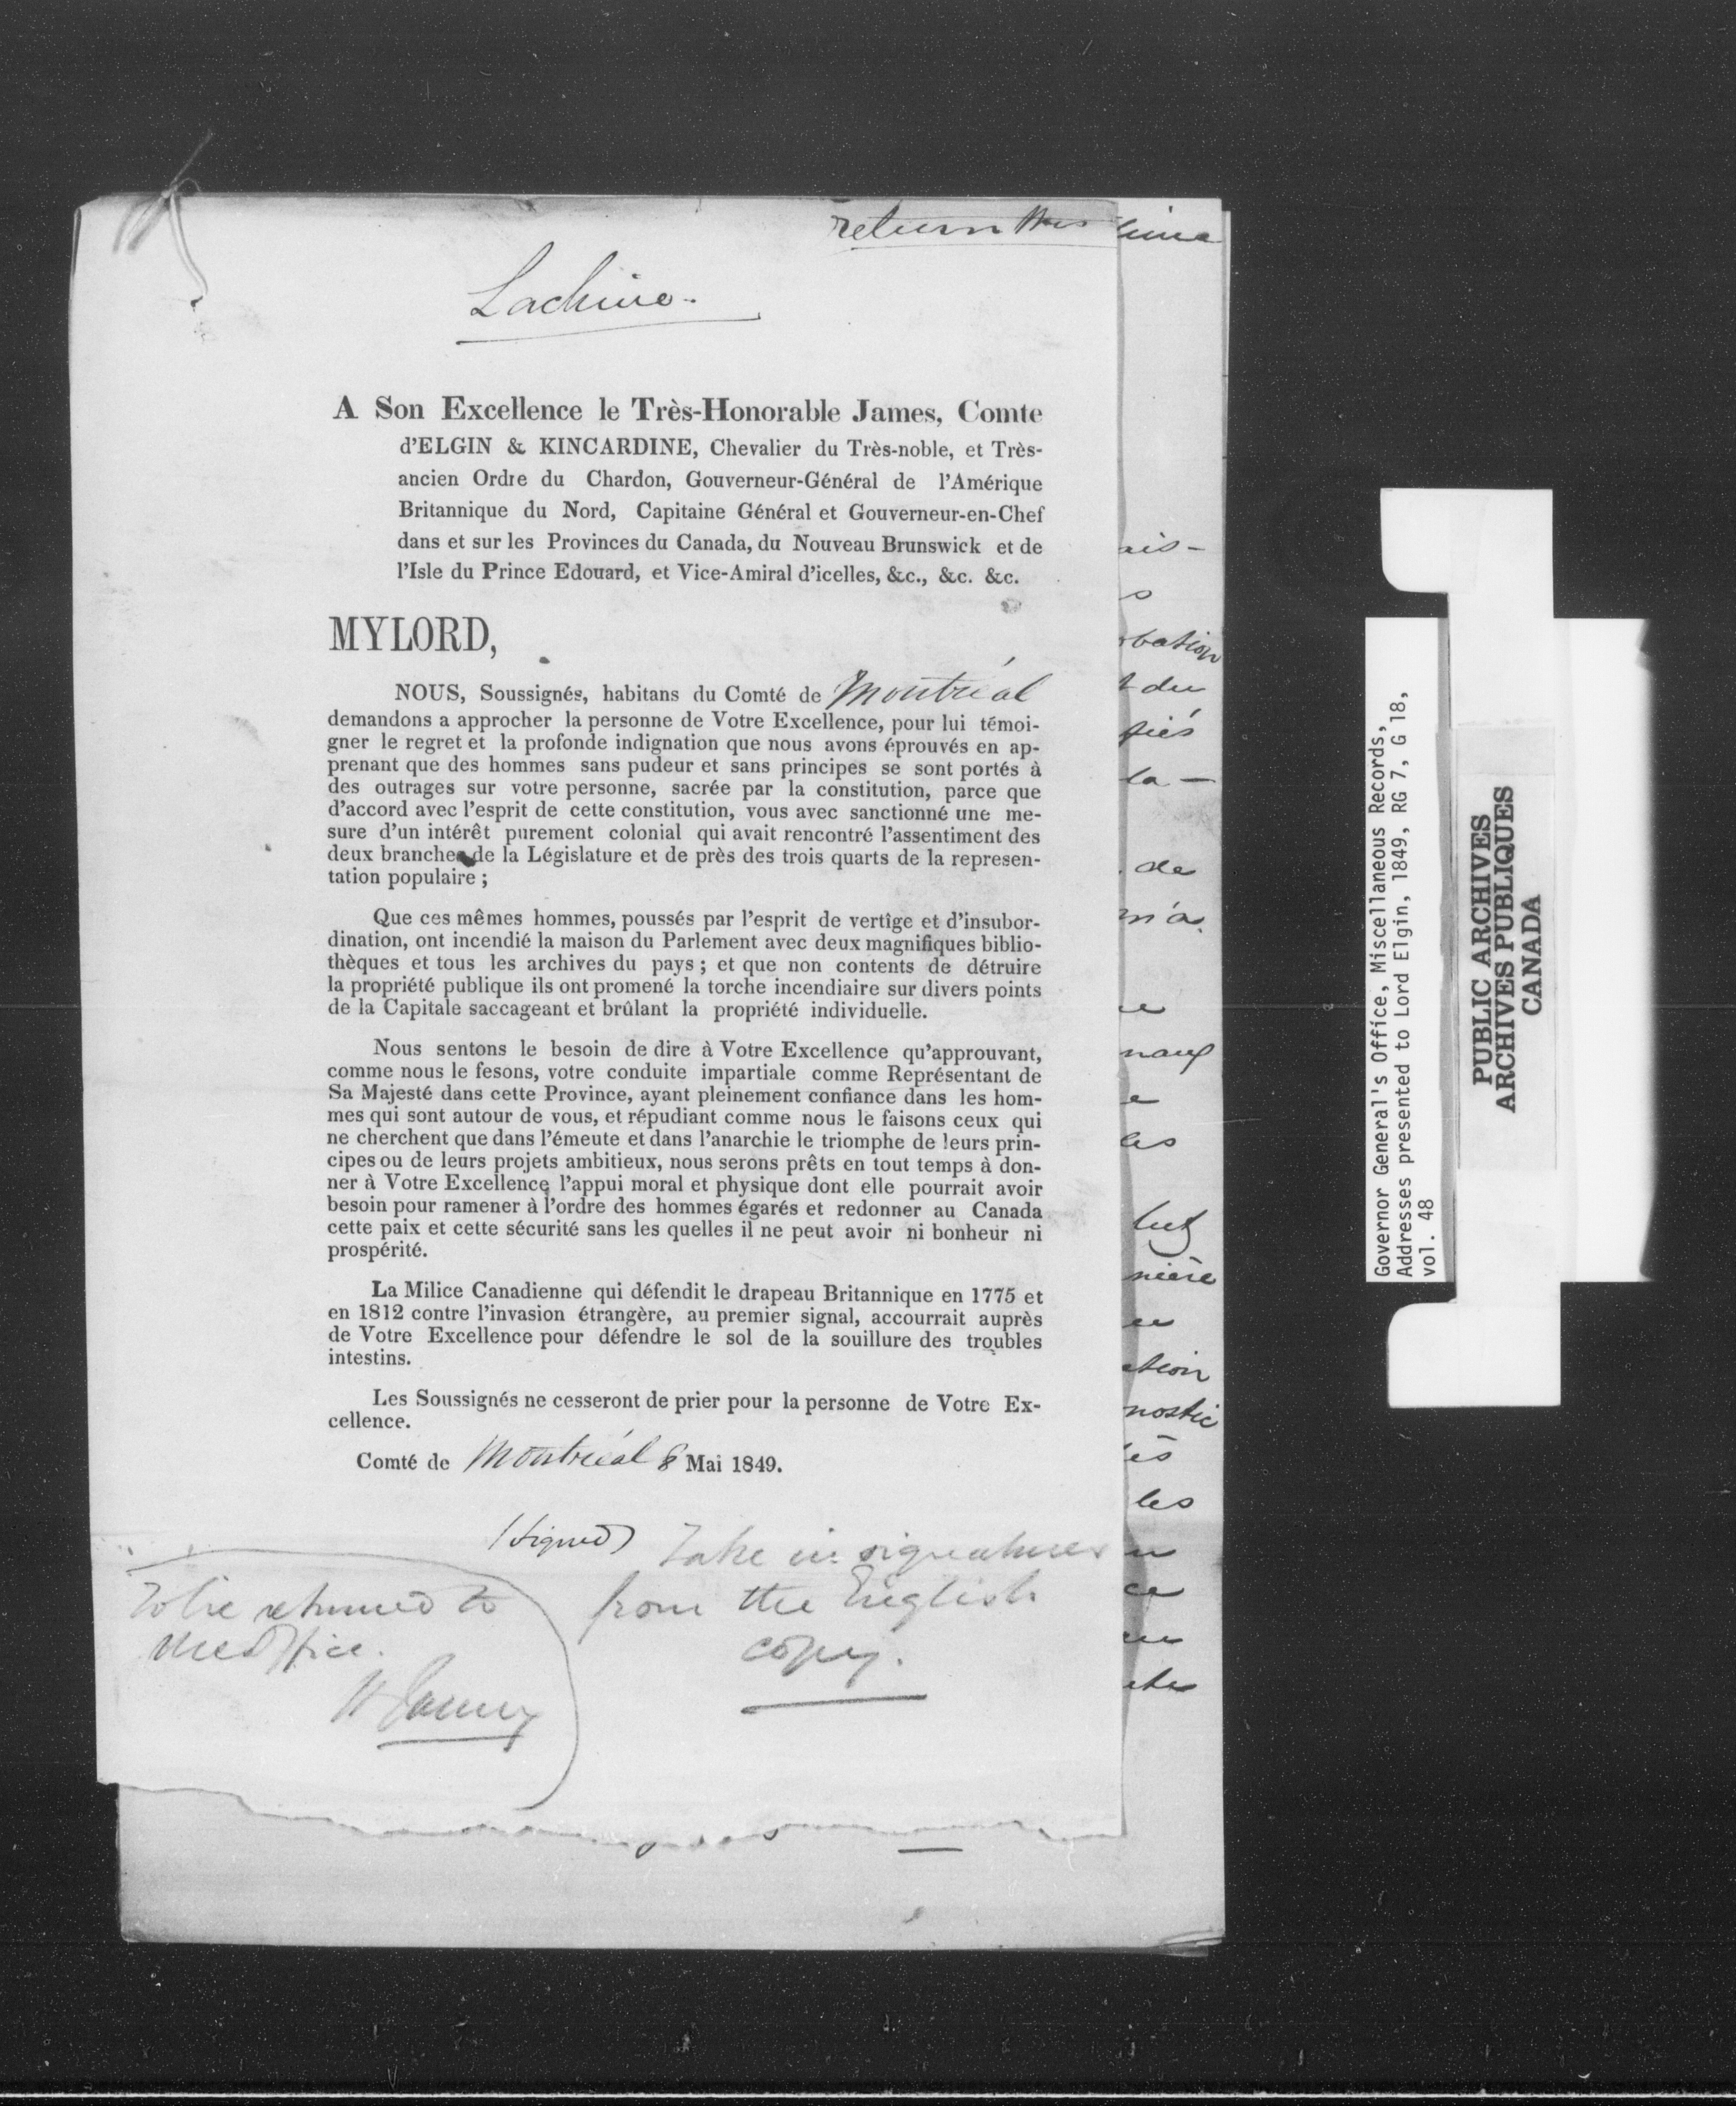 return this
Lachine.
A Son Excellence le Très-Honorable James, Comte
d'ELGIN & KINCARDINE, Chevalier du Très-noble, et Très-
ancien Ordre du Chardon, Gouverneur-Général de l'Amérique
Britannique du Nord, Capitaine Général et Gouverneur-en-Chef
dans et sur les Provinces du Canada, du Nouveau Brunswick et de
l'Isle du Prince Edouard, et Vice-Amiral d'icelles, &c., &c. &c.
MYLORD,
NOUS, Soussignés, habitans du Comté de Montréal
demandons a approcher la personne de Votre Excellence, pour lui témoi-
gner le regret et la profonde indignation que nous avons éprouvés en ap-
prenant que des hommes sans pudeur et sans principes se sont portés à
des outrages sur votre personne, sacrée par la constitution, parce que
d'accord avec l'esprit de cette constitution, vous avec sanctionné une me-
sure d'un intérêt purement colonial qui avait rencontré l'assentiment des
deux branches de la Législature et de près des trois quarts de la represen-
tation populaire ;
Que ces mêmes hommes, poussés par l'esprit de vertîge et d'insubor-
dination, ont incendié la maison du Parlement avec deux magnifiques biblio-
thèques et tous les archives du pays ; et que non contents de détruire
la propriété publique ils ont promené la torche incendiaire sur divers points
de la Capitale saccageant et brûlant la propriété individuelle.
Nous sentons le besoin de dire à Votre Excellence qu'approuvant,
comme nous le fesons, votre conduite impartiale comme Représentant de
Sa Majesté dans cette Province, ayant pleinement confiance dans les hom-
mes qui sont autour de vous, et répudiant comme nous le faisons ceux qui
ne cherchent que dans l'émeute et dans l'anarchie le triomphe de leurs prin-
cipes ou de leurs projets ambitieux, nous serons prêts en tout temps à don-
ner à Votre Excellence l'appui moral et physique dont elle pourrait avoir
besoin pour ramener à l'ordre des hommes égarés et redonner au Canada
cette paix et cette sécurité sans les quelles il ne peut avoir ni bonheur ni
prospérité.
La Milice Canadienne qui défendit le drapeau Britannique en 1775 et
en 1812 contre l'invasion étrangère, au premier signal, accourrait auprès
de Votre Excellence pour défendre le sol de la souillure des troubles
intestins.
Les Soussignés ne cesseront de prier pour la personne de Votre Ex-
cellence.
Comté de Montréal 8 Mai 1849.
(Signed) Take in signatures
from the English
copy.
To be returned to
the Office.
bation
t du
fiés
la -
de
m'a
les
nière
ation
nostic
les
Governor General's Office, Miscellaneous Records,
Addresses presented to Lord Elgin, 1849, RG 7, G 18,
vol. 48
PUBLIC ARCHIVES
ARCHIVES PUBLIQUES
CANADA